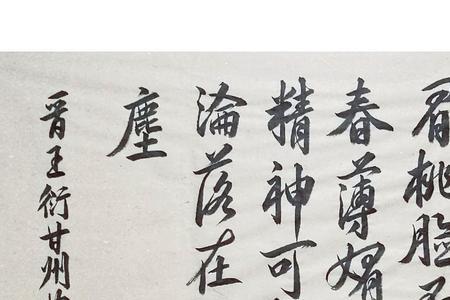 眉桃臉
春薄媚
精神可
淪落在
塵
晋王衍甘州